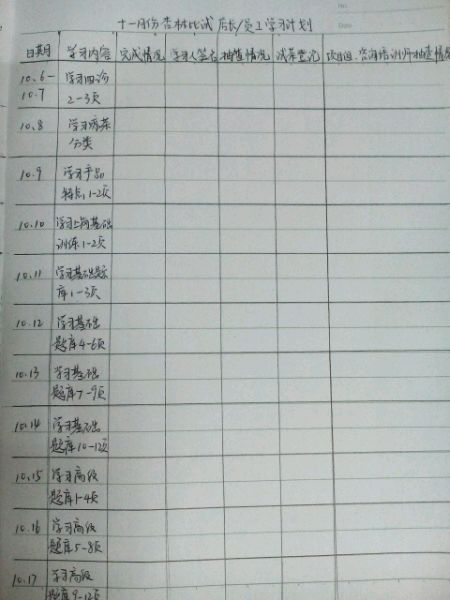 十一月份杏林比试 店长/员工学习计划
日期 学习内容 完成情况 学习人签名 抽查情况 成菜登记 项目组 咨询培训师抽查情况
10.6- 学习四诊
10.7 2-3页
10.8 学习病菜
分类
10.9 学习产品
特点1-2页
10.10 学习上岗基础
训练1-2页
10.11 学习基础题
库1-3页
10.12 学习基础
题库4-6页
10.13 学习基础
题库7-9页
10.14 学习基础
题库10-12页
10.15 学习高级
题库1-4页
10.16 学习高级
题库5-8页
10.17 学习高级
题库9-12页